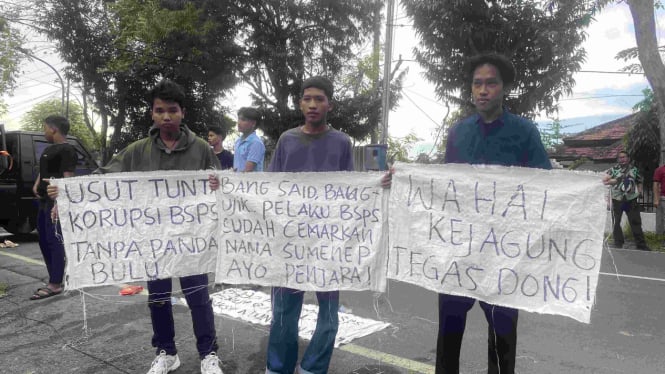 USUT TUNT
KORUPSI BSPS
TANPA PANDA
BULU
BANG SAID, BANG
UNK. PELAKU BSPS
SUDAH CEMARKAN
NAMA SUMENEP
AYO PENJARA!
WAHAI
KEJAGUNG
TEGAS DONG!